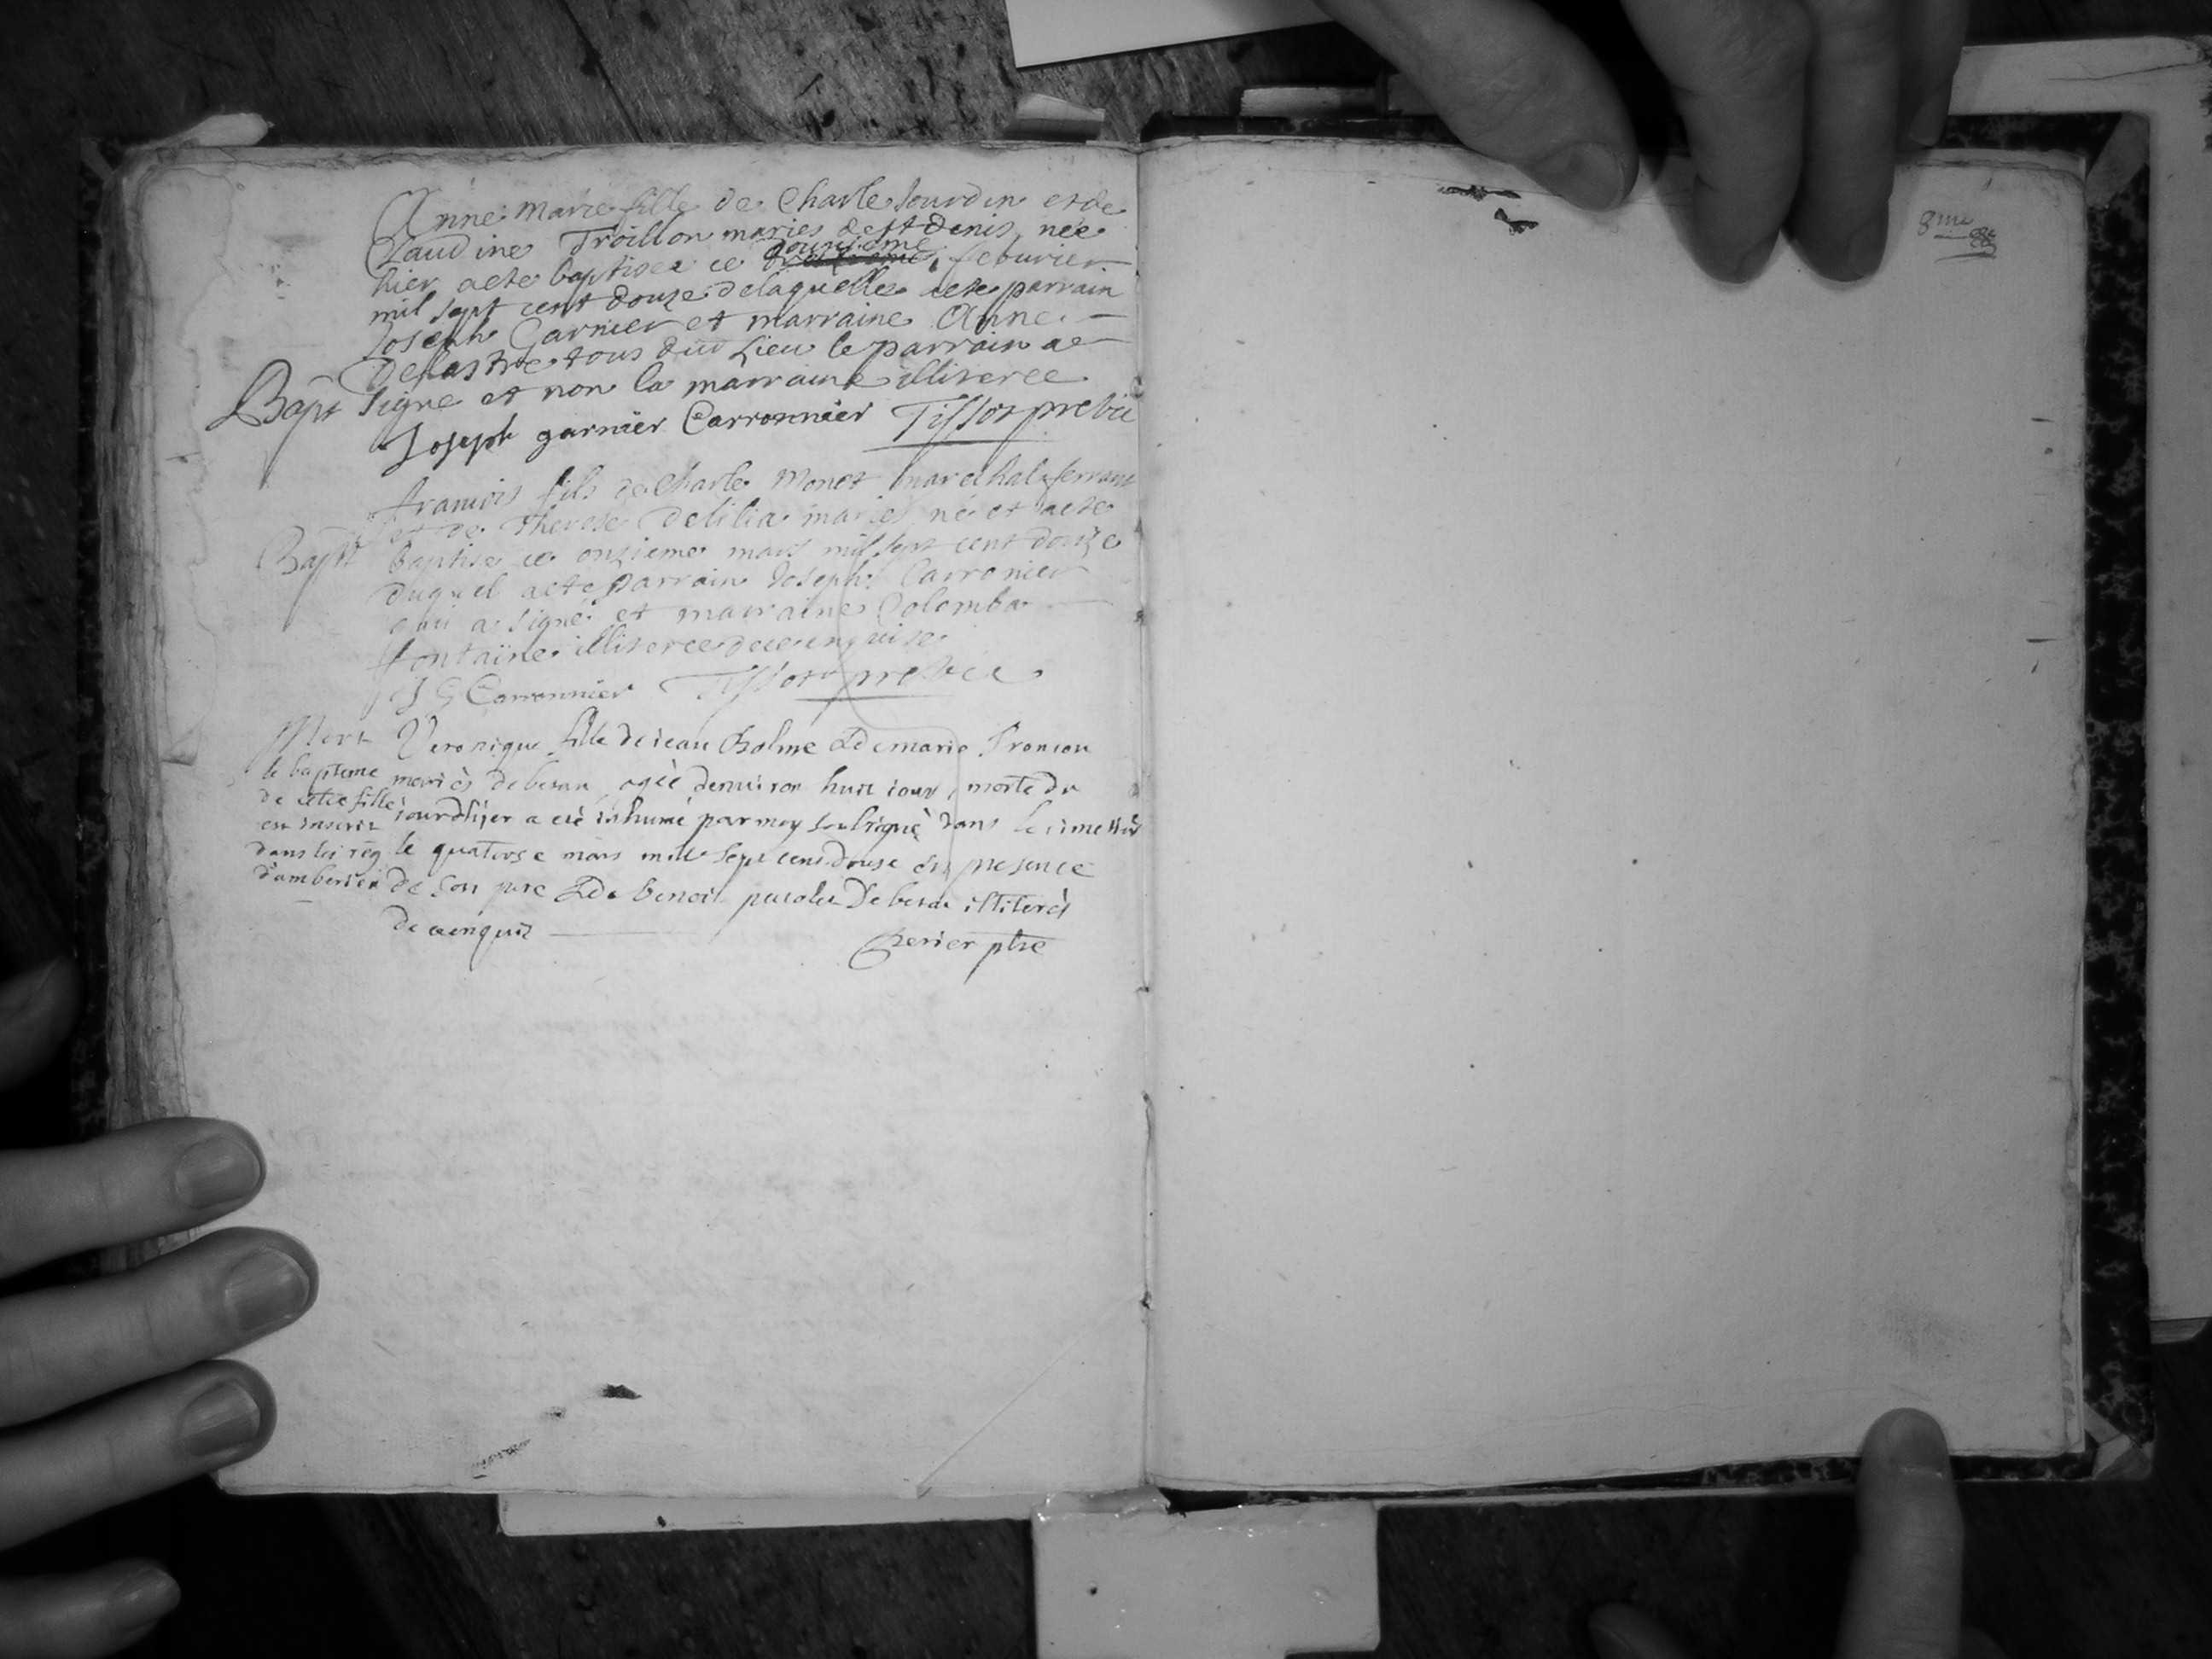 Anne Marie fille de Charle Jourdin et de
Claudine Troillon maries de st denis, née
hier, a ete baptisee ce douzieme febvrier
mil sept cent douze de laquelle a ete parrain
Joseph Garnier et marraine Anne
Delastre tous dud Lieu le parrain a
Bapt signe et non la marraine illiteree
Joseph garnier Carronnier Tissot prebre
francois fils de Charle Monet marechal ferrant
et de Therese Delilia maries né et a ete
Bapt baptise ce onzieme mars mil sept cent douze
duquel a ete parrain Joseph Carronier
qui a signé et marraine Colomba
fontaine illiteree de ce enquise
J G Carronnier Tissot prebre
Mort Veronique fille de jean Bolme & de marie
le bapteme mariès de agée denuiron huit jour, morte du
de cette fille jourdhyer a eté inhumé par moy soubsigné dans le cimettiere
est inscrit
dans les reg le quatorse mars mille sept cens douse en presence
d'amberieu de son pere & de benoit de illiterés
de ce enquis
ptre
8me